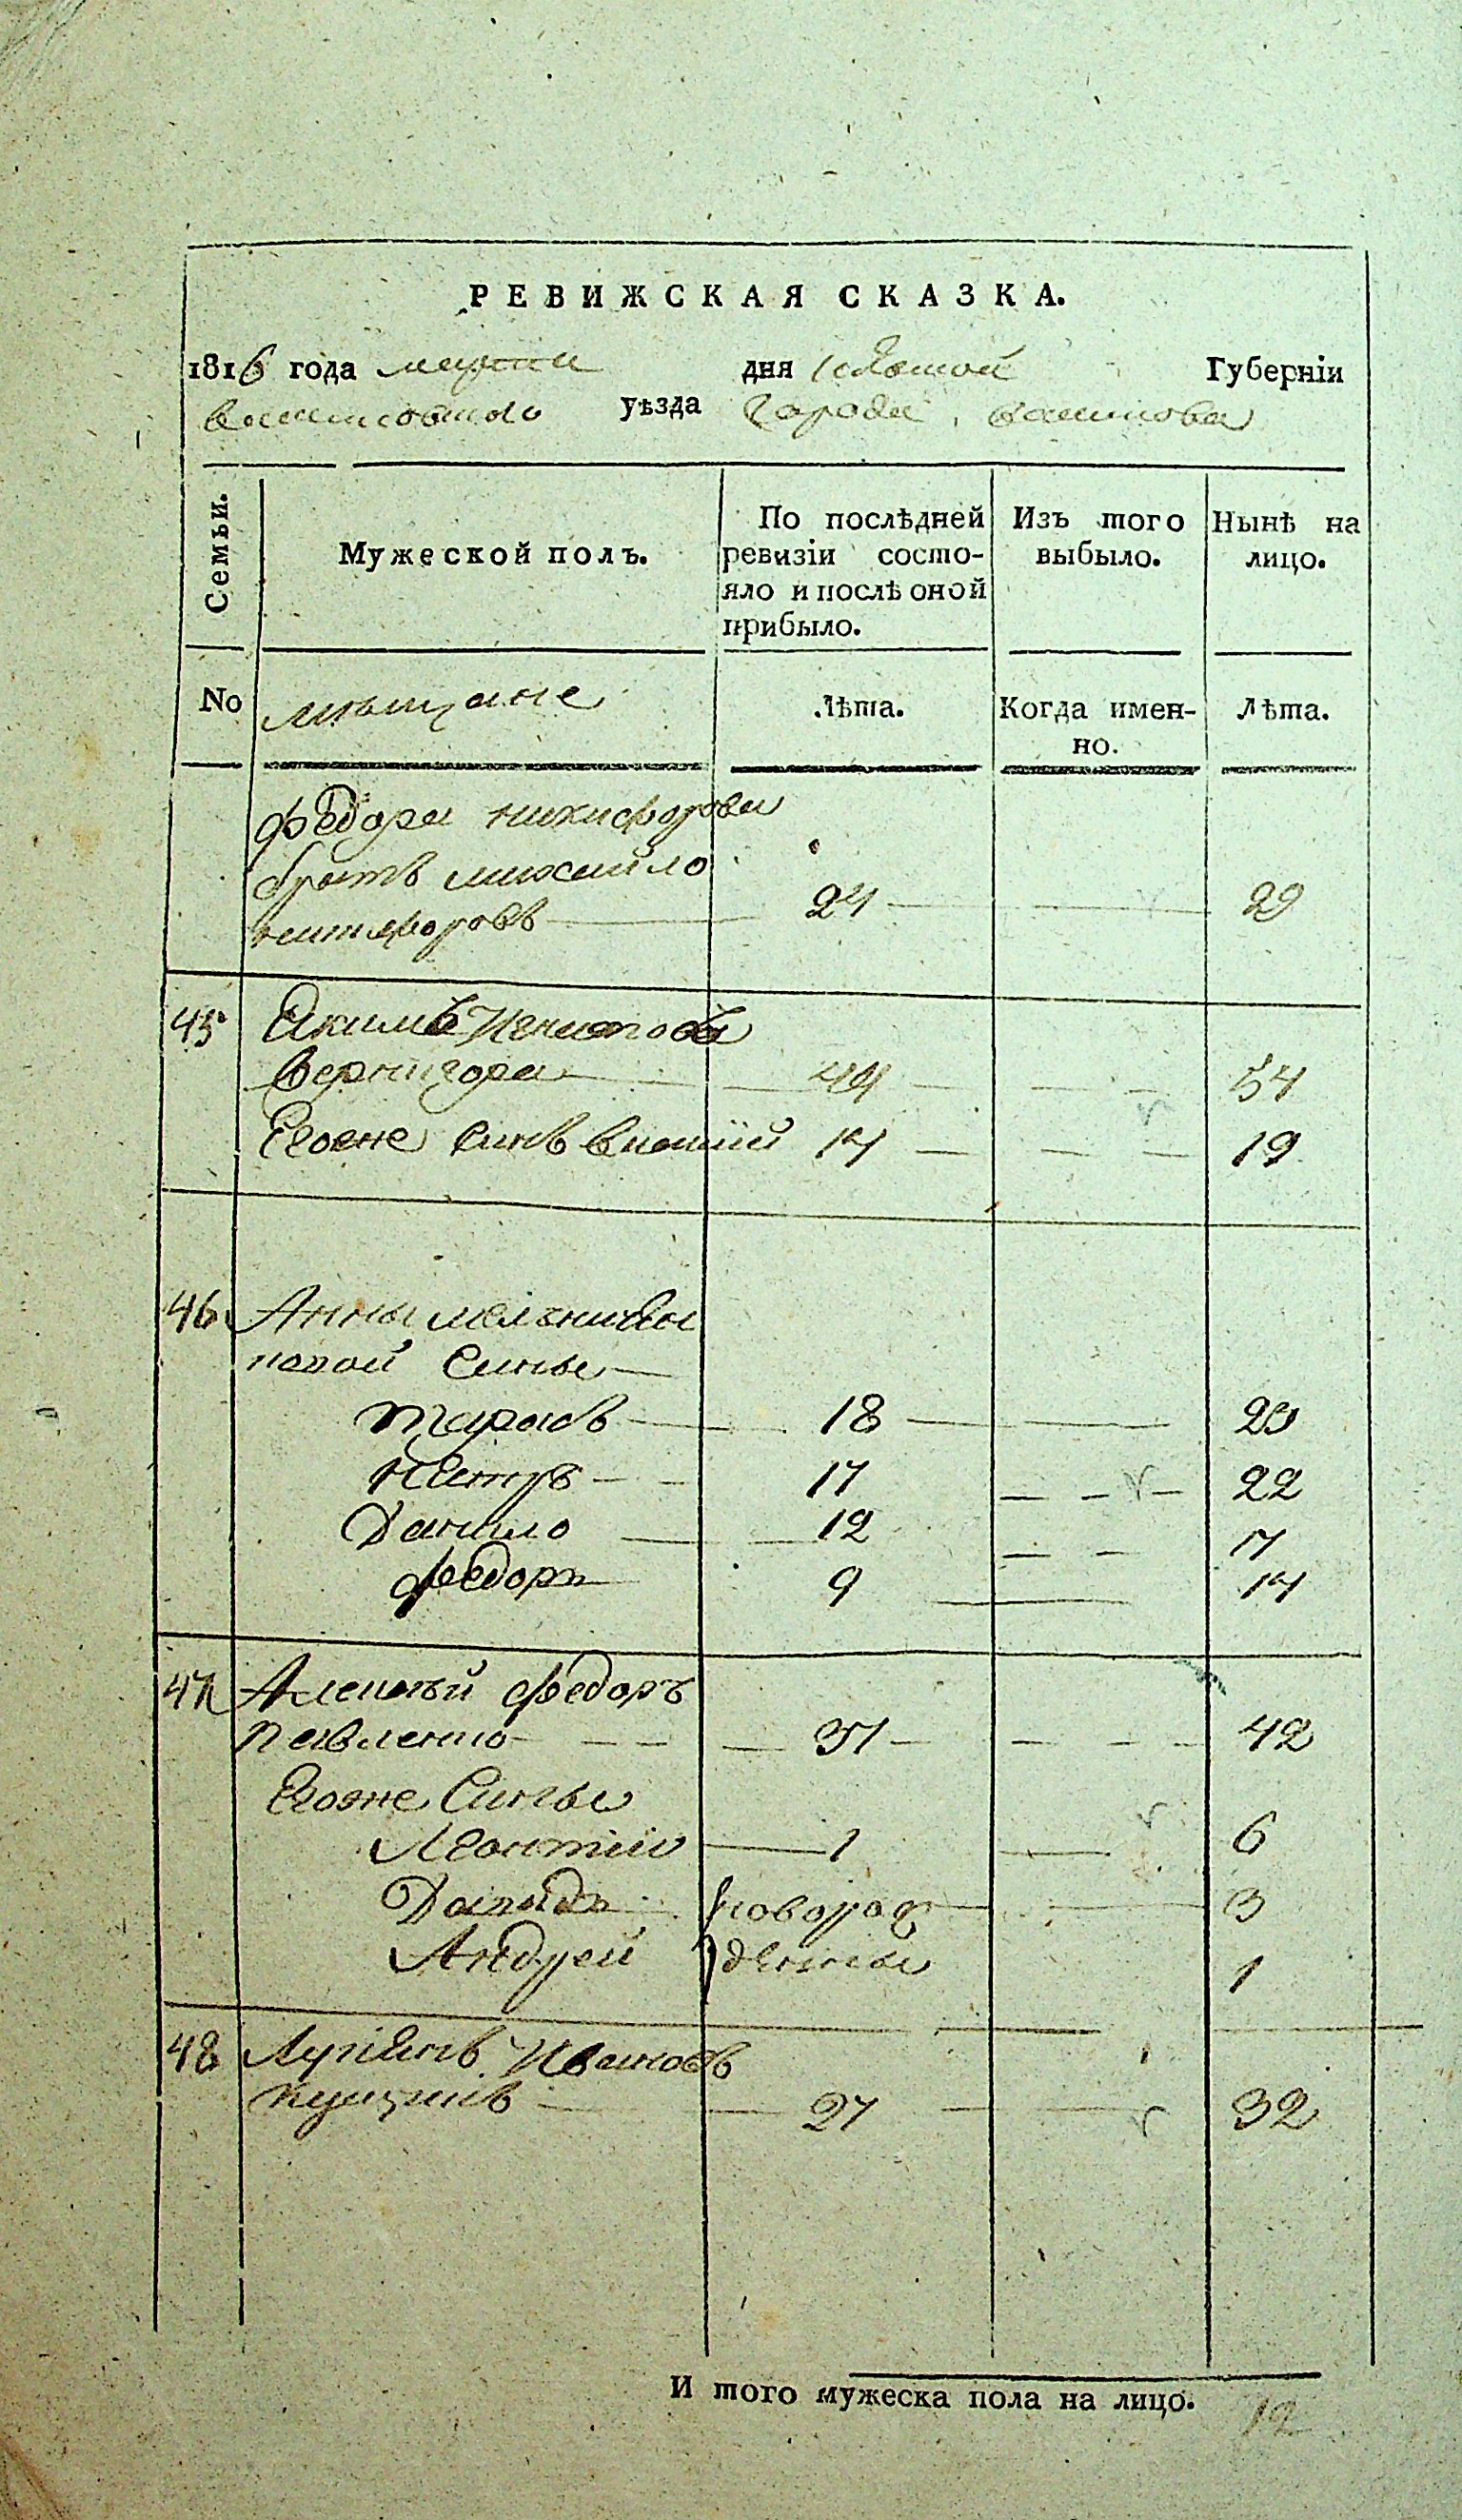 РЕВИЖСКАЯ СКАЗКА.
1816 года марта дня Губерніи
уѣзда города
Семьи.
Мужеской полъ.
По послѣдней ревизіи состояло и послѣ оной прибыло.
Изъ того выбыло.
Нынѣ на лицо.
No мѣщане Лѣта. Когда именно. Лѣта.
Федора никифорова
братъ михайло
никифоровъ 24 29
45 Екимъ Игнатовъ
вернигора 49 54
Егоже синъ 14 19
46 Анны
сины
тарасъ 18 23
Петръ 17 22
Данило 12 17
федоръ 9 14
47 Алексѣй федоръ
павленко 37 42
Егоже Сины
Леонтій 1 6
Давидъ новорож 3
Андрей денны 1
48 Ивановъ
27 32
И того мужеска пола на лицо. 12